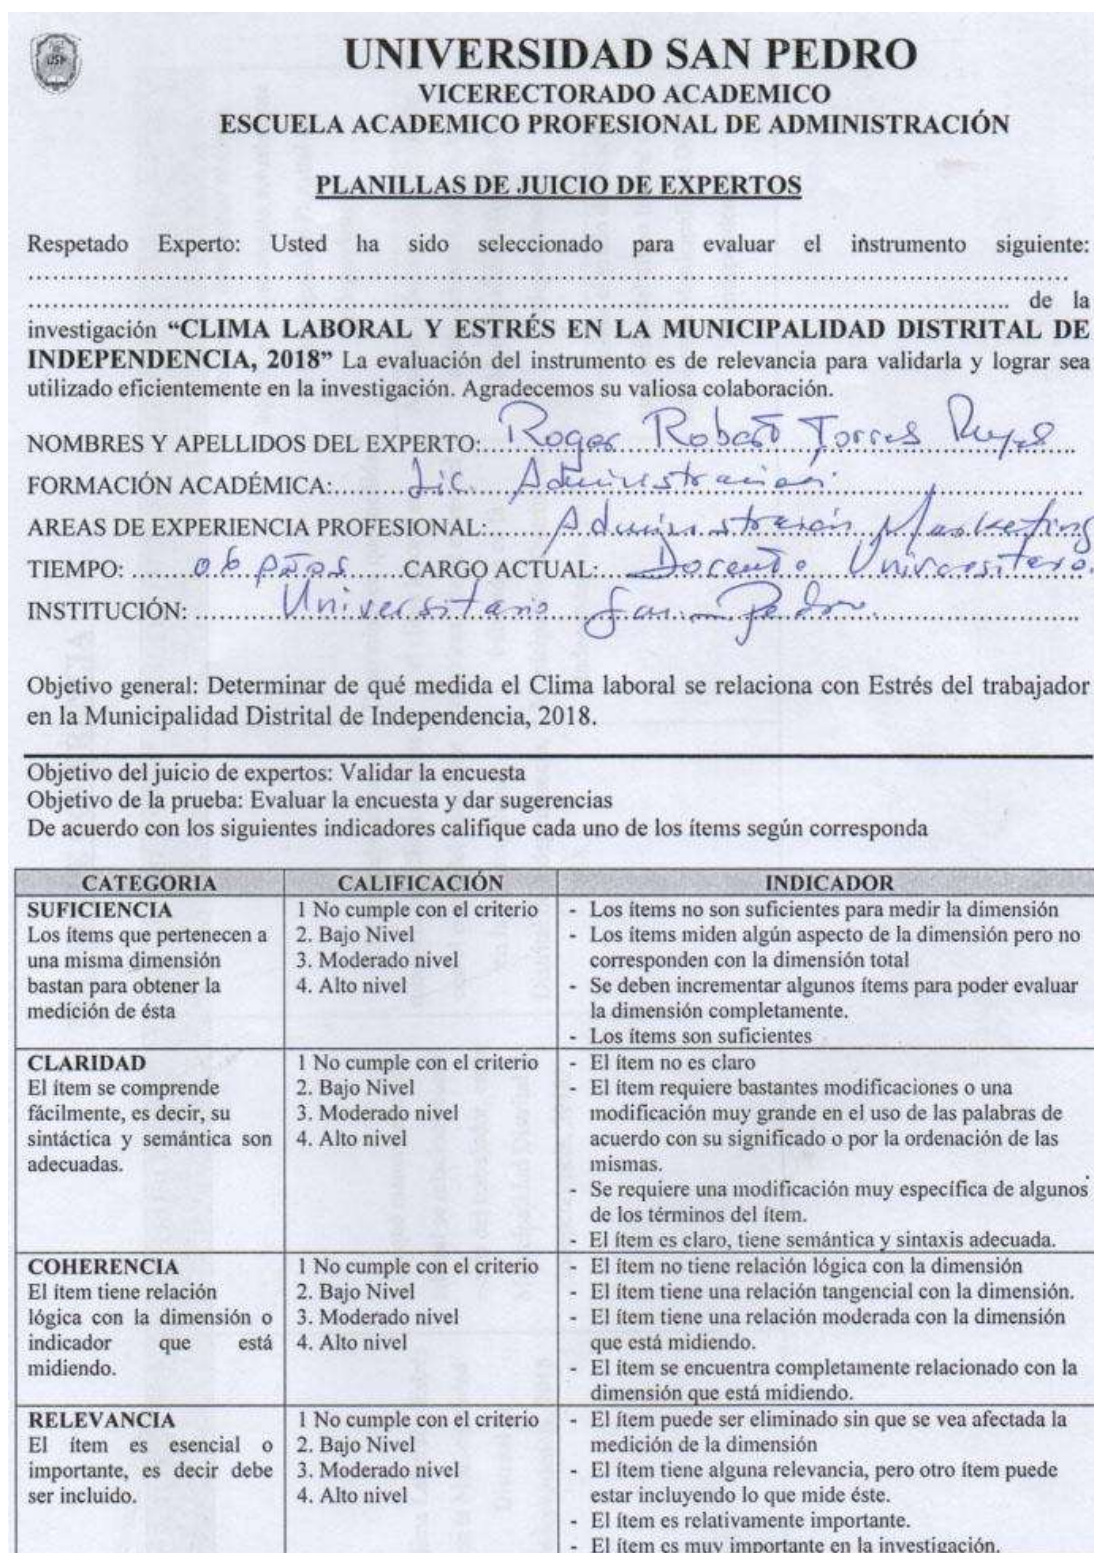 USP
UNIVERSIDAD SAN PEDRO
VICERECTORADO ACADEMICO
ESCUELA ACADEMICO PROFESIONAL DE ADMINISTRACIÓN
PLANILLAS DE JUICIO DE EXPERTOS
Respetado Experto: Usted ha sido seleccionado para evaluar el instrumento siguiente:
de la
investigación “CLIMA LABORAL Y ESTRÉS EN LA MUNICIPALIDAD DISTRITAL DE
INDEPENDENCIA, 2018” La evaluación del instrumento es de relevancia para validarla y lograr sea
utilizado eficientemente en la investigación. Agradecemos su valiosa colaboración.
NOMBRES Y APELLIDOS DEL EXPERTO: Roger Robert Torres
FORMACIÓN ACADÉMICA: Lic. Administración
AREAS DE EXPERIENCIA PROFESIONAL: Administración Marketing
TIEMPO: 06 años CARGO ACTUAL: Docente Universitario.
INSTITUCIÓN: Universitario San Pedro.
Objetivo general: Determinar de qué medida el Clima laboral se relaciona con Estrés del trabajador
en la Municipalidad Distrital de Independencia, 2018.
Objetivo del juicio de expertos: Validar la encuesta
Objetivo de la prueba: Evaluar la encuesta y dar sugerencias
De acuerdo con los siguientes indicadores califique cada uno de los ítems según corresponda
CATEGORIA CALIFICACIÓN INDICADOR
SUFICIENCIA
Los ítems que pertenecen a
una misma dimensión
bastan para obtener la
medición de ésta
1 No cumple con el criterio
2. Bajo Nivel
3. Moderado nivel
4. Alto nivel
- Los ítems no son suficientes para medir la dimensión
- Los ítems miden algún aspecto de la dimensión pero no
corresponden con la dimensión total
- Se deben incrementar algunos ítems para poder evaluar
la dimensión completamente.
- Los ítems son suficientes
CLARIDAD
El ítem se comprende
fácilmente, es decir, su
sintáctica y semántica son
adecuadas.
1 No cumple con el criterio
2. Bajo Nivel
3. Moderado nivel
4. Alto nivel
- El ítem no es claro
- El ítem requiere bastantes modificaciones o una
modificación muy grande en el uso de las palabras de
acuerdo con su significado o por la ordenación de las
mismas.
- Se requiere una modificación muy específica de algunos
de los términos del ítem.
- El ítem es claro, tiene semántica y sintaxis adecuada.
COHERENCIA
El ítem tiene relación
lógica con la dimensión o
indicador que está
midiendo.
1 No cumple con el criterio
2. Bajo Nivel
3. Moderado nivel
4. Alto nivel
- El ítem no tiene relación lógica con la dimensión
- El ítem tiene una relación tangencial con la dimensión.
- El ítem tiene una relación moderada con la dimensión
que está midiendo.
- El ítem se encuentra completamente relacionado con la
dimensión que está midiendo.
RELEVANCIA
El ítem es esencial o
importante, es decir debe
ser incluido.
1 No cumple con el criterio
2. Bajo Nivel
3. Moderado nivel
4. Alto nivel
- El ítem puede ser eliminado sin que se vea afectada la
medición de la dimensión
- El ítem tiene alguna relevancia, pero otro ítem puede
estar incluyendo lo que mide éste.
- El ítem es relativamente importante.
- El ítem es muy importante en la investigación.